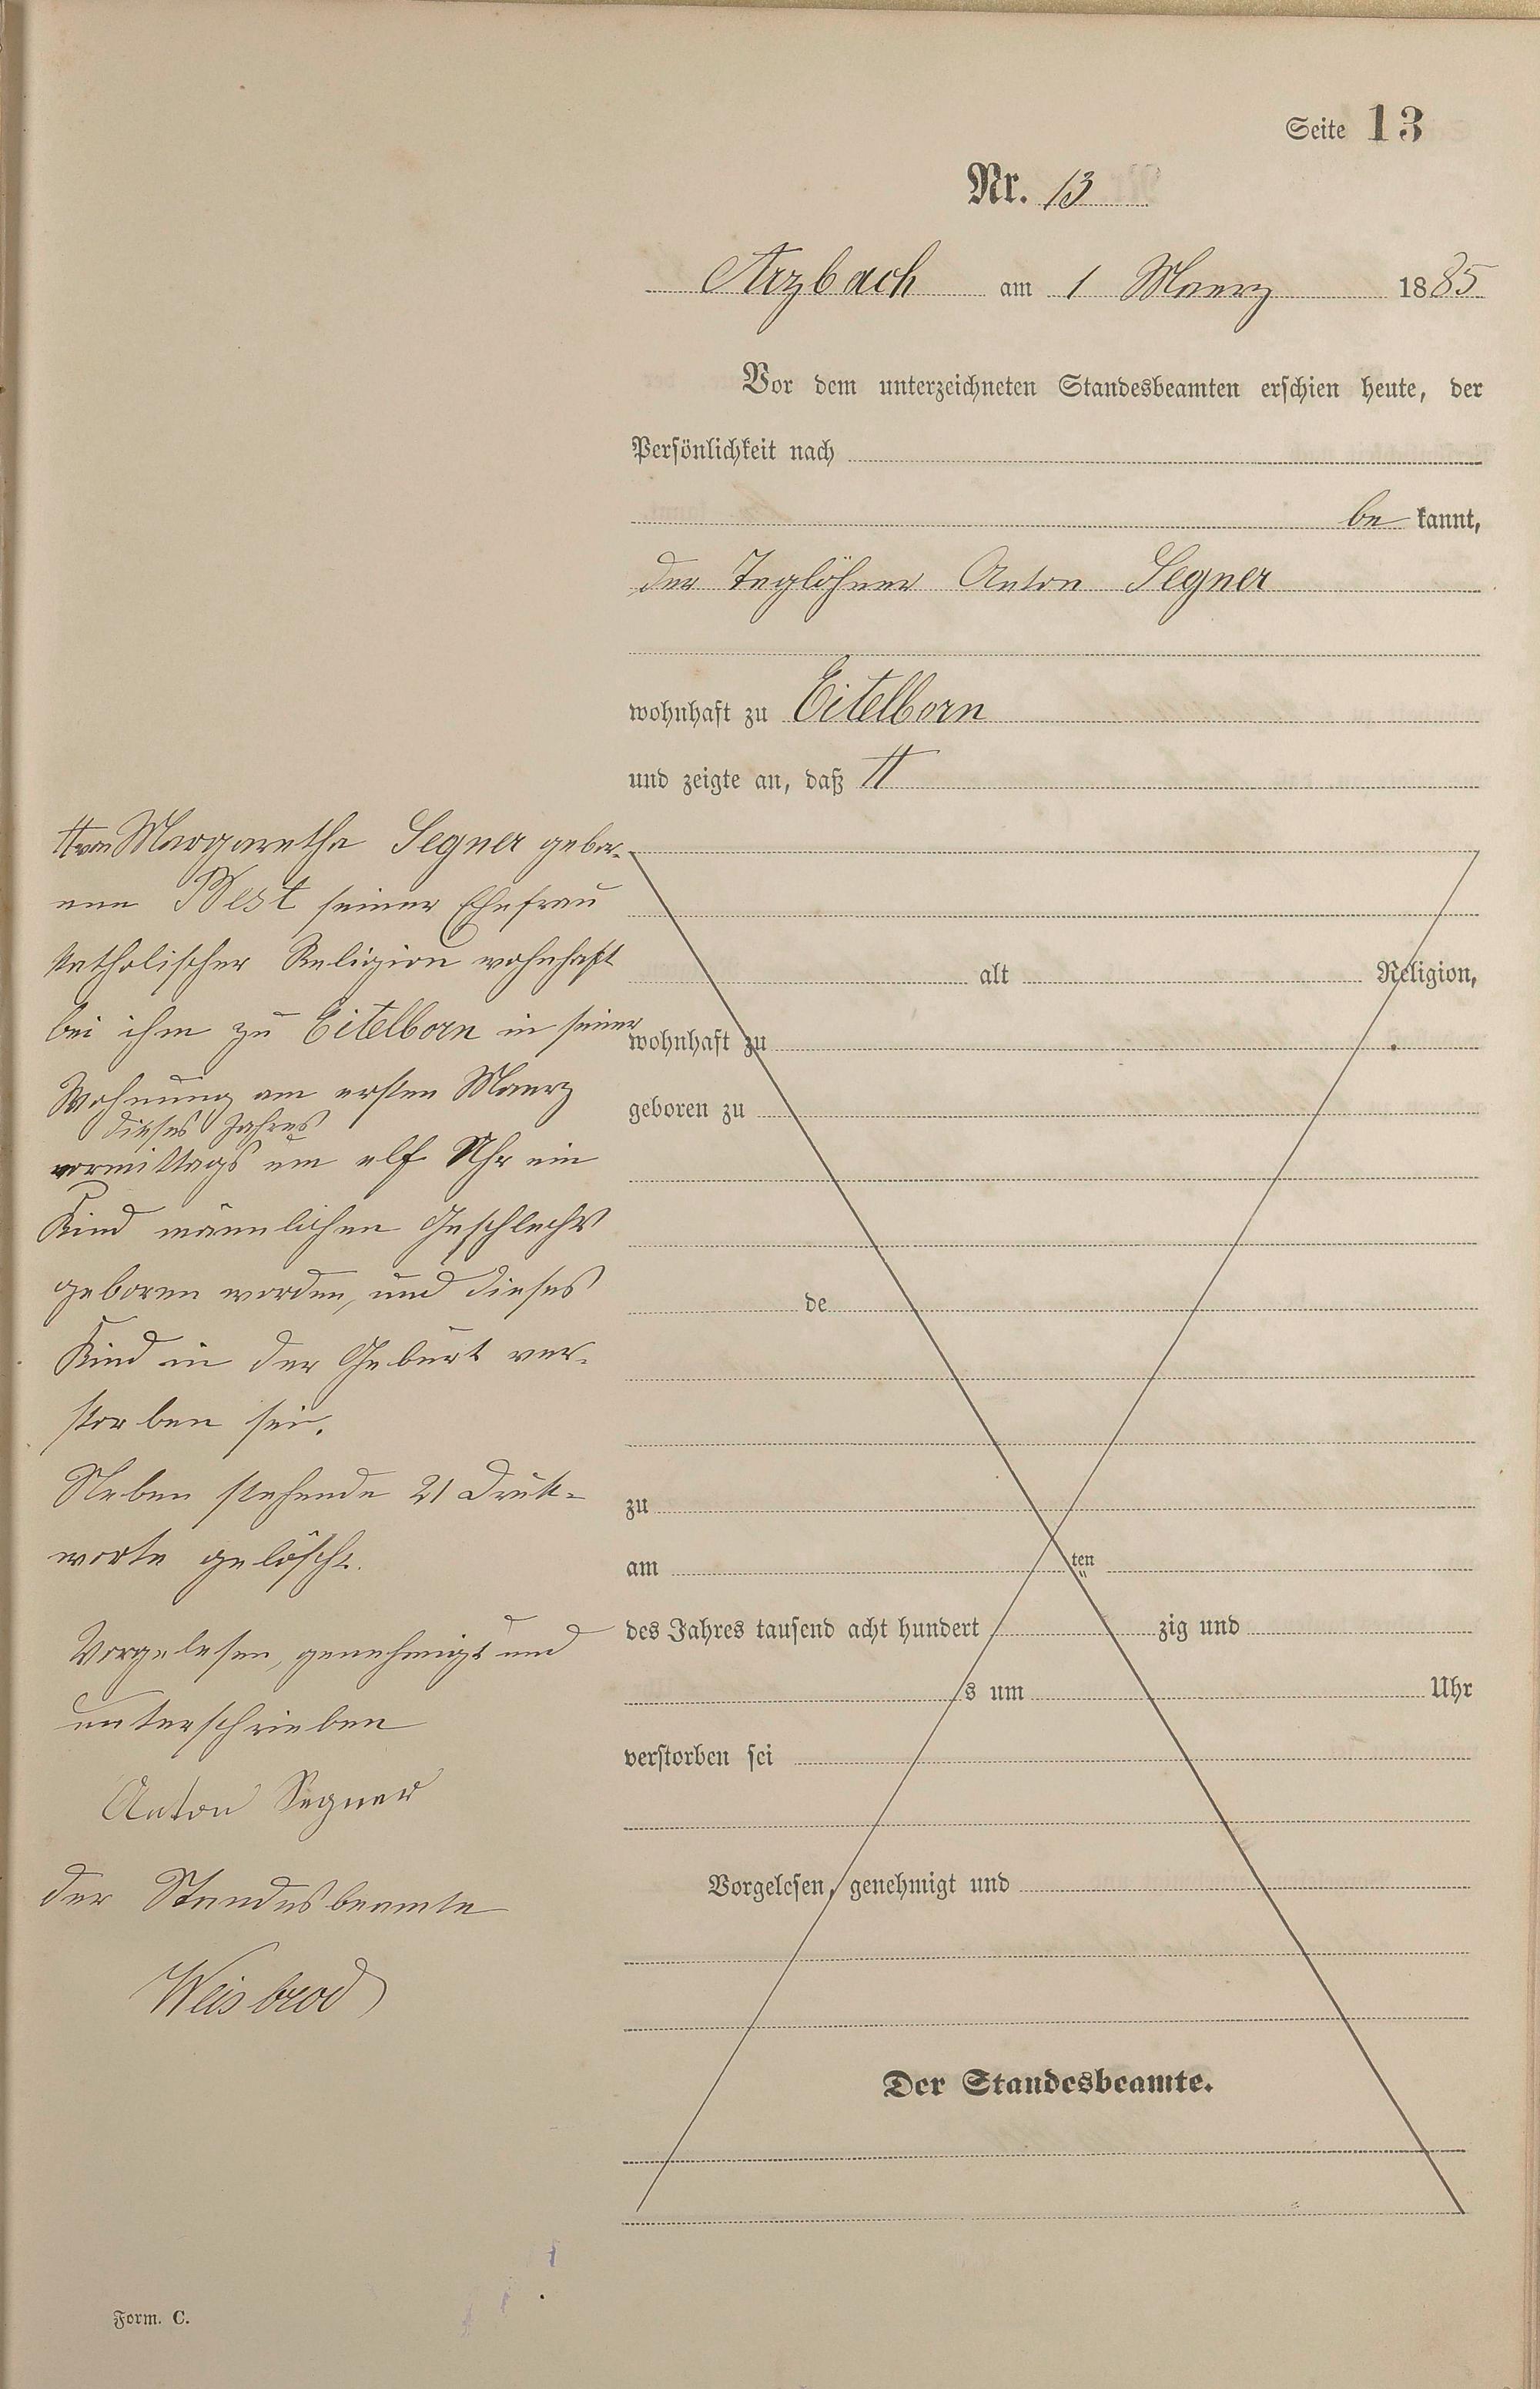 Seite 13
Nr. 13
Arzbach am 1 Maerz 1885
Vor dem unterzeichneten Standesbeamten erschien heute, der
Persönlichkeit nach
be kannt,
der Taglöhner Anton Segner
wohnhaft zu Eitelborn
und zeigte an, daß
von Margaretha Segner gebor-
ene Best seiner Ehefrau
katholischer Religion wohnhaft
bei ihm zu Eitelborn in seiner
Wohnung am ersten Maerz
dieses Jahres
vormittags um elf Uhr ein
Kind männlichen Geschlechts
geboren worden, und dieses
Kind in der Geburt ver-
storben sei.
Neben stehende 21 Druk-
worte gelöscht.
Vorgelesen, genehmigt und
unterschrieben
Anton Segner
der Standesbeamte
Weisbrod
alt Religion,
wohnhaft zu
geboren zu
de
zu
am ten
des Jahres tausend acht hundert zig und
s um Uhr
verstorben sei
Vorgelesen, genehmigt und
Der Standesbeamte.
Form. C.